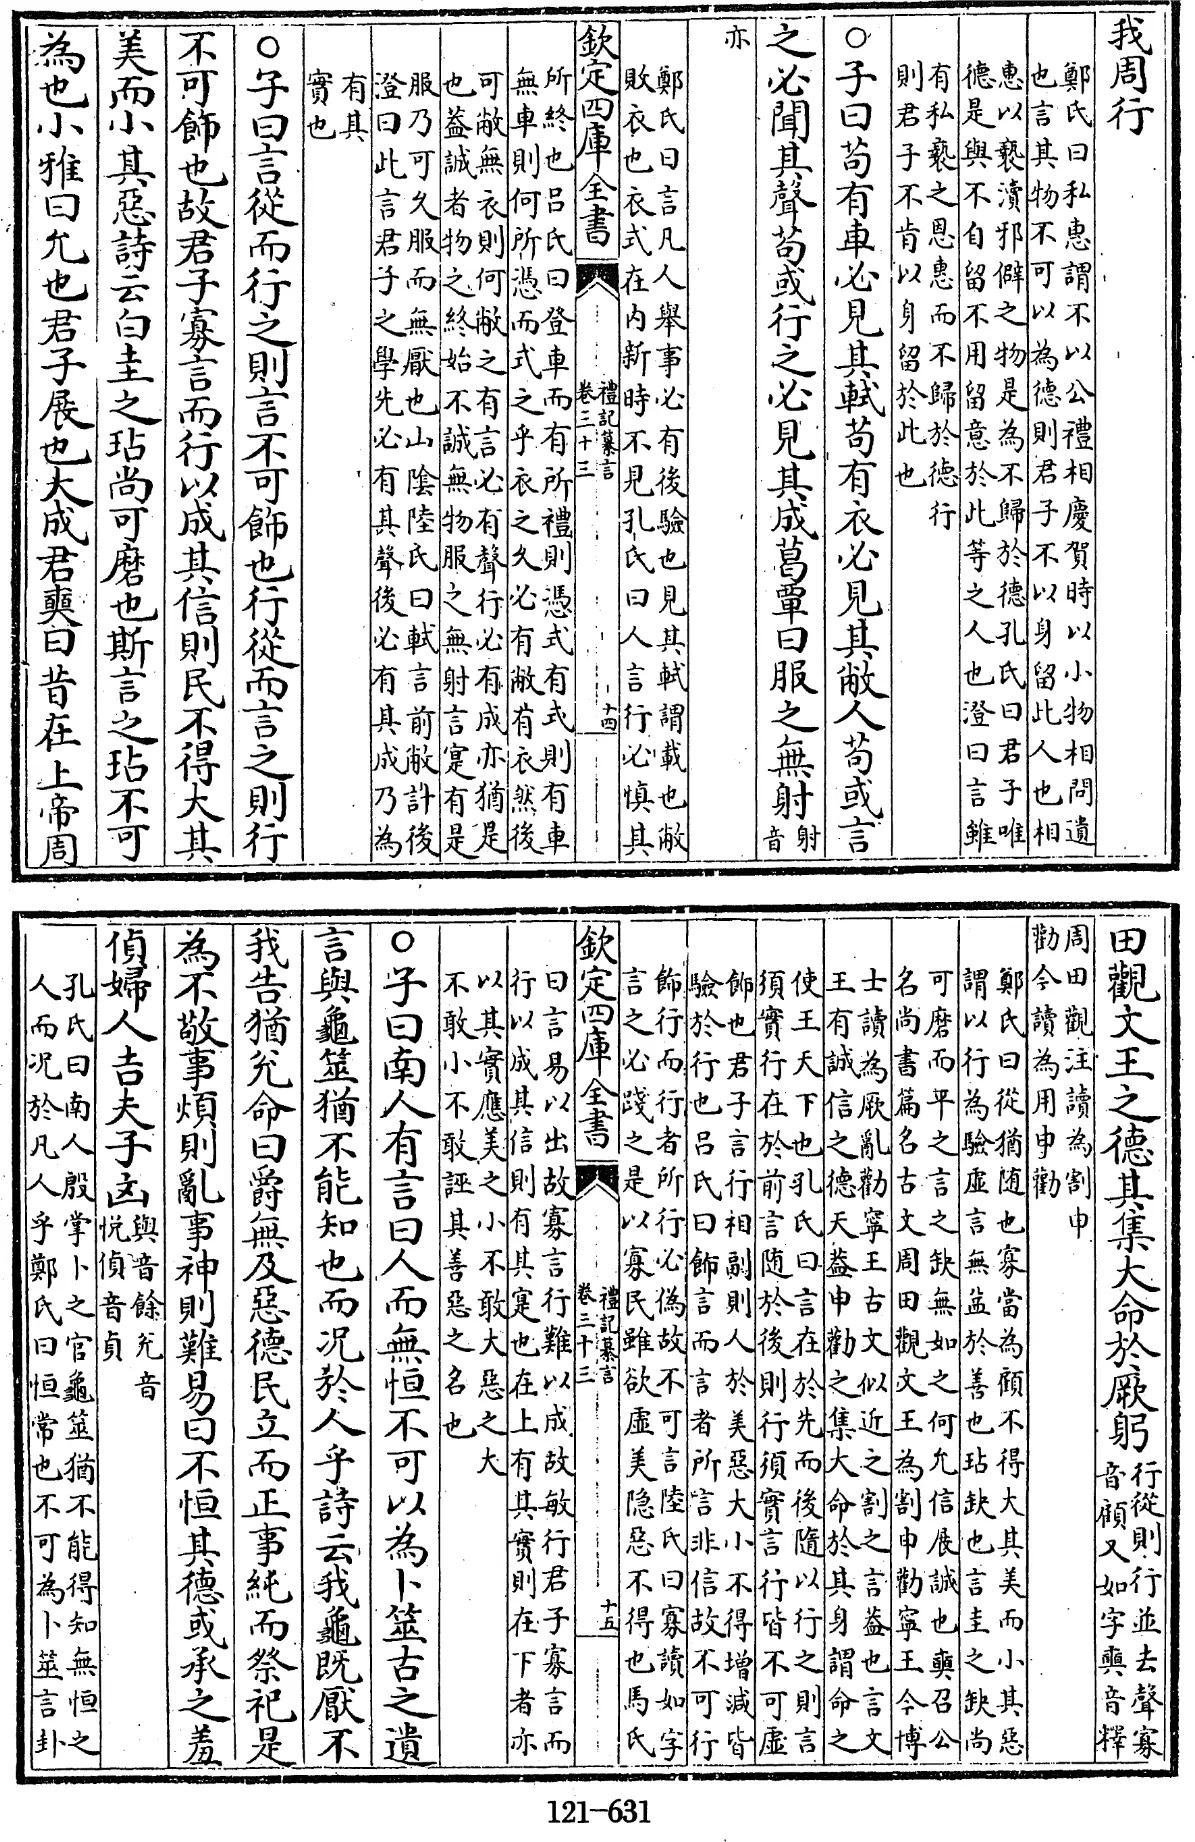 我周行
鄭氏曰私惠謂不以公禮相慶賀時以小物相問遺
也言其物不可以為德則君子不以身留此人也相
惠以褻瀆邪僻之物是為不歸於德孔氏曰君子唯
德是與不自留不用留意於此等之人也澄曰言雖
有私褻之恩惠而不歸於德行
則君子不肯以身留於此也
○子曰苟有車必見其軾苟有衣必見其敝人苟或言
之必聞其聲苟或行之必見其成葛覃曰服之無射射
音
亦
鄭氏曰言凡人舉事必有後驗也見其軾謂載也敝
敗衣也衣式在內新時不見孔氏曰人言行必慎其
欽定四庫全書
禮記纂言
卷三十三
十四
所終也呂氏曰登車而有所禮則憑式有式則有車
無車則何所憑而式之乎衣之久必有敝有衣然後
可敝無衣則何敝之有言必有聲行必有成亦猶是
也蓋誠者物之終始不誠無物服之無射言寔有是
服乃可久服而無厭也山陰陸氏曰軾言前敝計後
澄曰此言君子之學先必有其聲後必有其成乃為
有其
實也
○子曰言從而行之則言不可飾也行從而言之則行
不可飾也故君子寡言而行以成其信則民不得大其
美而小其惡詩云白圭之玷尚可磨也斯言之玷不可
為也小雅曰允也君子展也大成君奭曰昔在上帝周
田觀文王之德其集大命於厥躬行從則行並去聲寡
音顧又如字奭音釋
周田觀注讀為割申
勸今讀為用申勸
鄭氏曰從猶随也寡當為顧不得大其美而小其惡
謂以行為驗虛言無益於善也玷缺也言圭之缺尚
可磨而平之言之缺無如之何允信展誠也奭召公
名尚書篇名古文周田觀文王為割申勸寧王今博
士讀為厥亂勸寧王古文似近之割之言蓋也言文
王有誠信之德天蓋申勸之集大命於其身謂命之
使王天下也孔氏曰言在於先而後隨以行之則言
須實行在於前言随於後則行須實言行皆不可虛
飾也君子言行相副則人於美惡大小不得增減皆
驗於行也呂氏曰飾言而言者所言非信故不可行
飾行而行者所行必偽故不可言陸氏曰寡讀如字
言之必踐之是以寡民雖欲虛美隐惡不得也馬氏
欽定四庫全書
禮記纂言
卷三十三
十五
曰言易以出故寡言行難以成故敏行君子寡言而
行以成其信則有其寔也在上有其實則在下者亦
以其實應美之小不敢大惡之大
不敢小不敢誣其善惡之名也
○子曰南人有言曰人而無恒不可以為卜筮古之遺
言與龜筮猶不能知也而况於人乎詩云我龜既厭不
我告猶兊命曰爵無及惡德民立而正事純而祭祀是
為不敬事煩則亂事神則難易曰不恒其德或承之羞
偵婦人吉夫子凶與音餘兊音
悅偵音貞
孔氏曰南人殷掌卜之官龜筮猶不能得知無恒之
人而况於凡人乎鄭氏曰恒常也不可為卜筮言卦
121-631